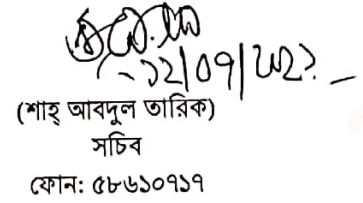 ১২/০৭/২০২১
(শাহ্ আবদুল তারিক)
সচিব
ফোন: ৫৮৬১০৭১৭